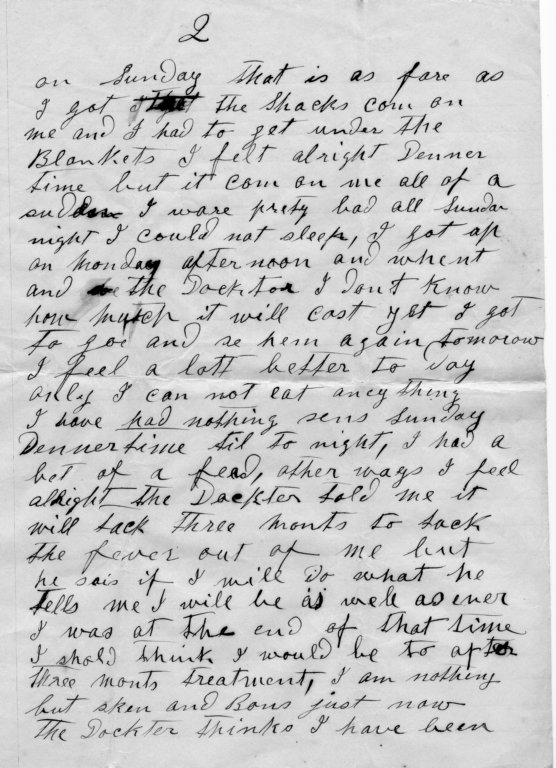 2
on Sunday that is as fare as
I got the Shacks com on
me and I had to get under the
Blankets I felt alright Denner
time but it com on me all of a
sudden I ware prety bad all Sunday
night I could not sleep, I got up
on Monday afternoon and whent
and the Docktor I dont Know
how mutch it will cost yet I got
to goe and se hem again tomorow
I feel a lott better to Day
only I can not eat aney thing
I have had nothing sens Sunday
Denner time til to night, I had a
bet of a feed, other ways I feel
alright the Dockter told me it
will tack three monts to tack
the fever out of me but
he sais if I will Do what he
tells me I will be as well as ever
I was at the end of that time
I shold think I would be to after
three monts treatment, I am nothing
but sken and Bons just now
the Dockter thinks I have been